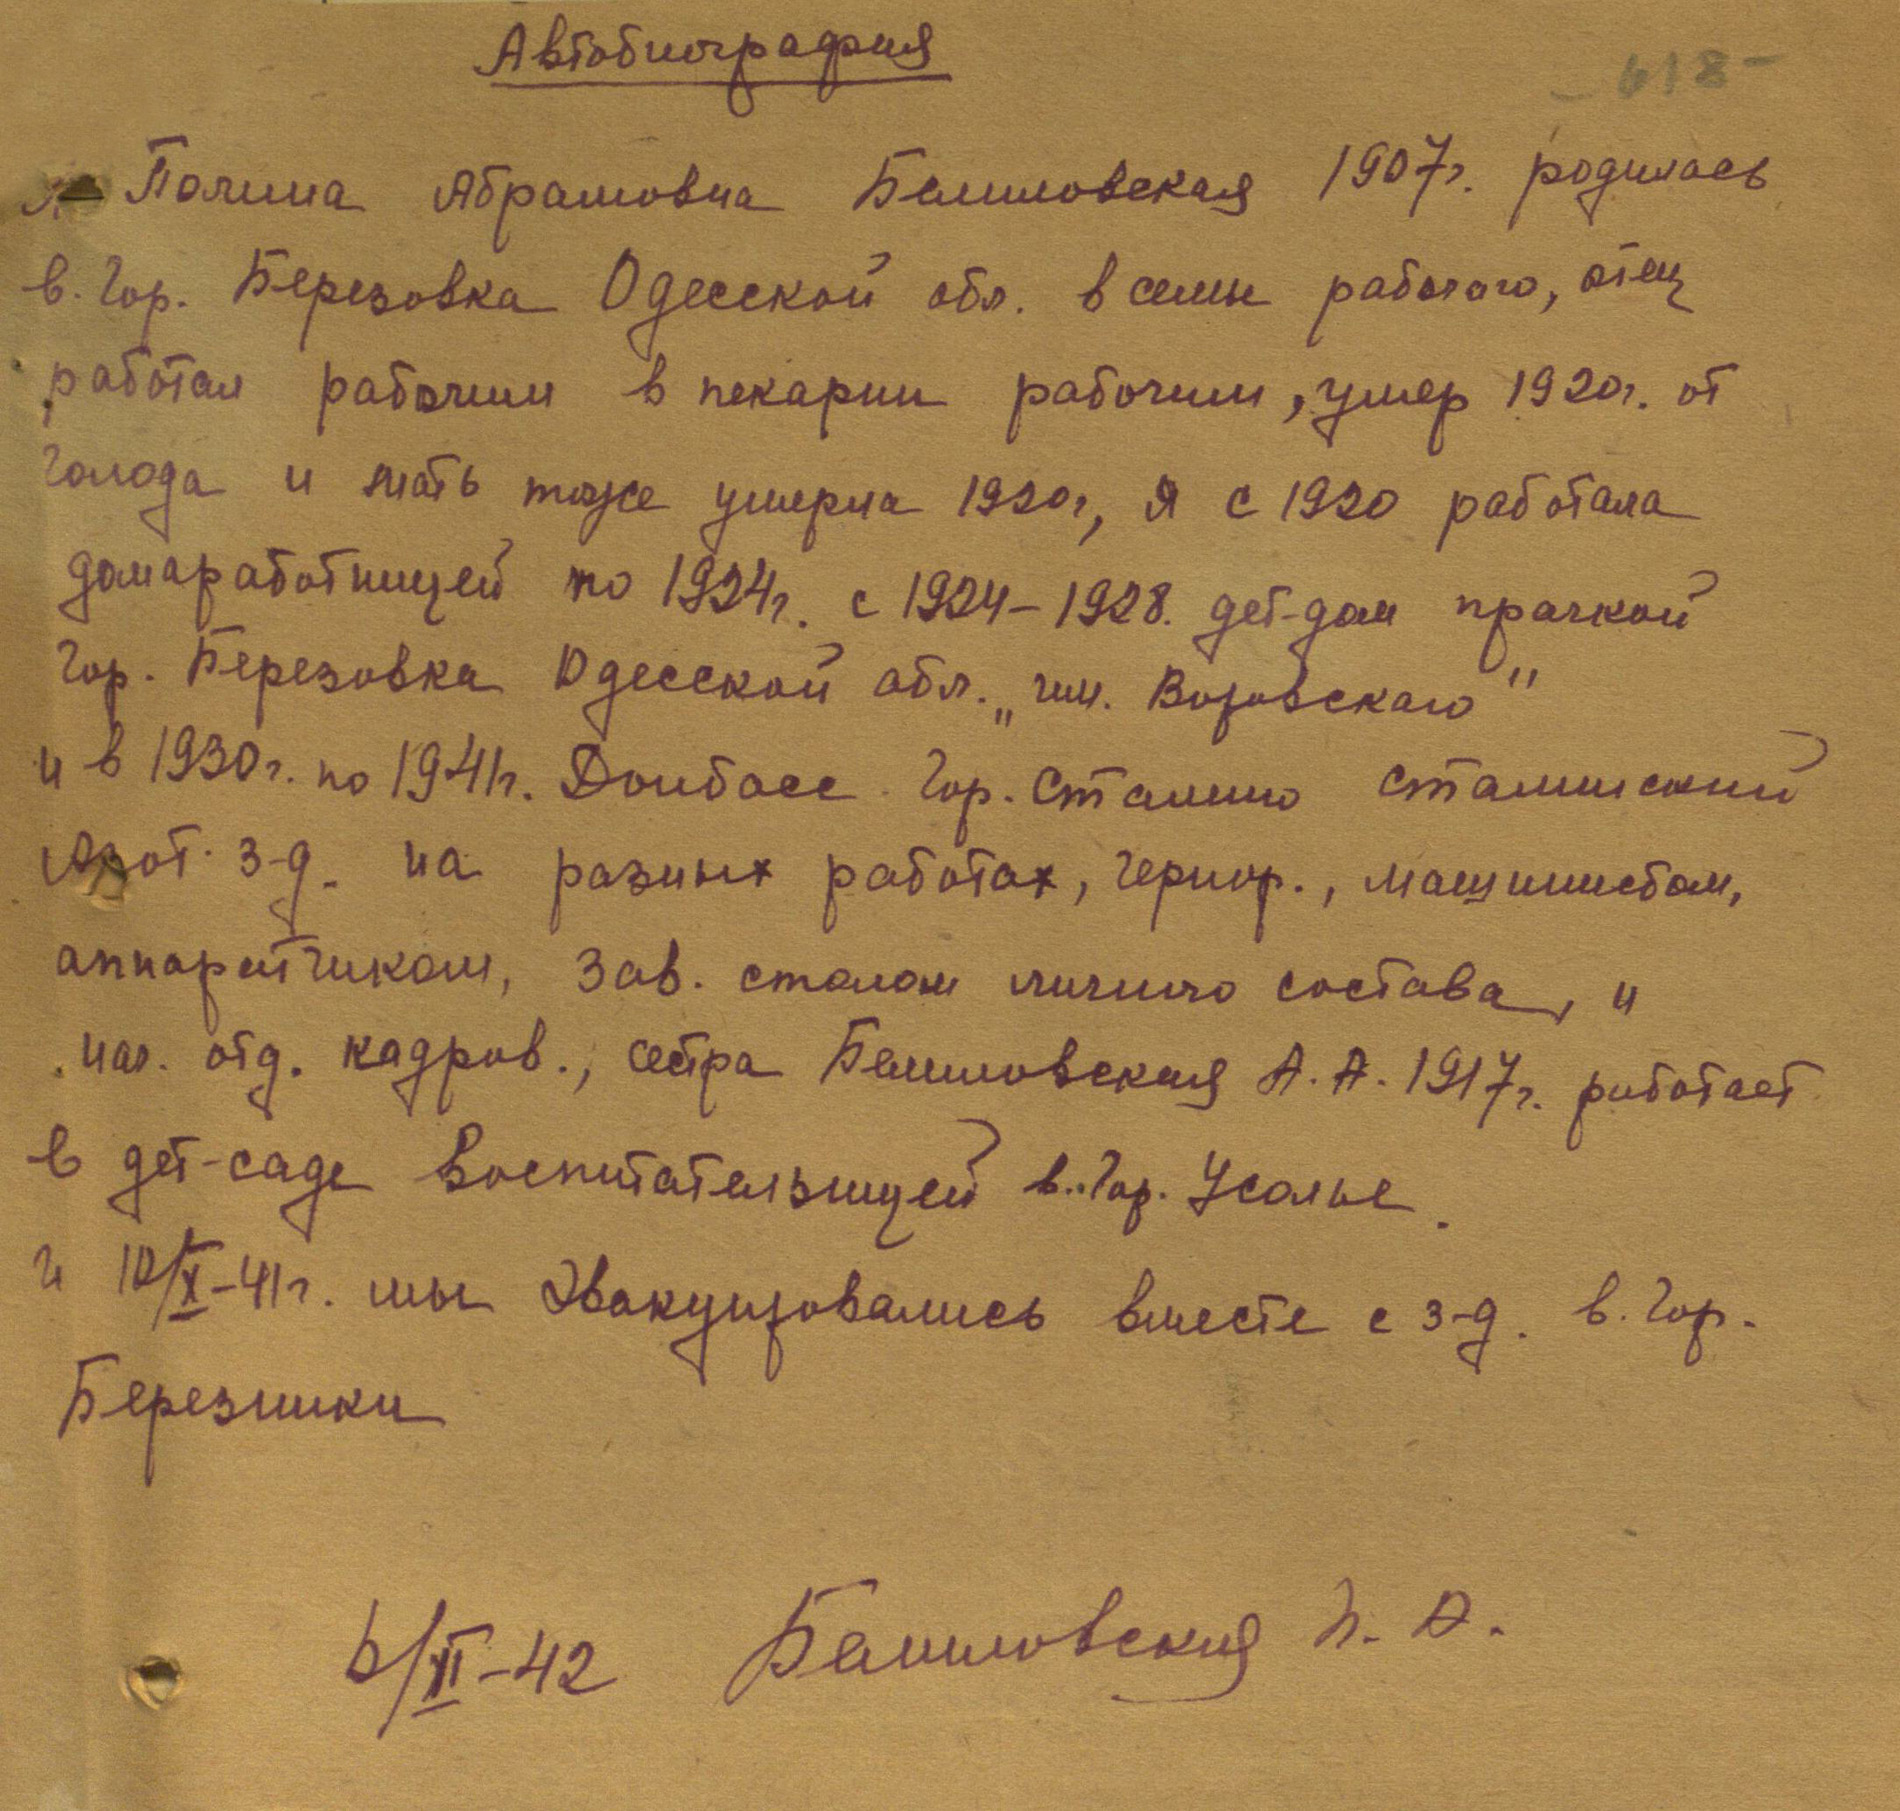 Автобиография
- 618 -
Я Полина Абрамовна Белиловская 1907г. родилась
в. гор. Березовка Одесской обл. в семье рабочого, отец
работал рабочим в пекарни рабочим, умер 1920г. от
голода и мать тоже умерла 1920г, я с 1920 работала
домаработницей по 1924г. с 1924-1928. дет-дом прачкой
гор. Березовка Одесской обл. „им. Воровского"
и в 1930г. по 1941г. Донбасс. гор. Сталино Сталинский
Азот. з-д. на разных работах, чернор., машинистом,
аппаратчиком, Зав. столом личного состава, и
нач. отд. кадров., сестра Белиловская А. А. 1917г. работает
в дет-саде Воспитательницей в. гор. Усолье.
и 10/X-41г. мы эвакуировались вместе с з-д. в. гор.
Березники
6/XI-42 Белиловская П. А.